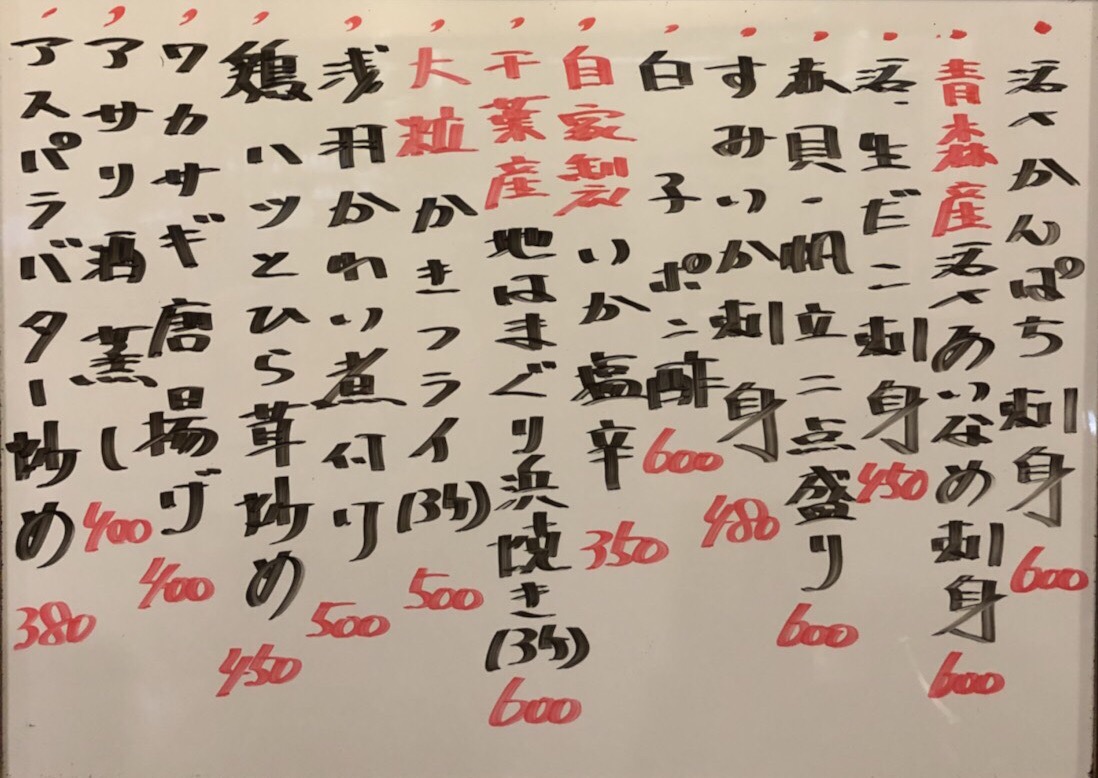 活〆かんぱち刺身 600
青森産活〆あいなめ刺身 600
活・生だこ刺身 450
赤貝・帆立二点盛り 600
すみいか刺身 480
白子ポン酢 600
自家製いか塩辛 350
千葉産地はまぐり浜焼き(3ケ) 600
大粒かきフライ(3ケ) 500
浅羽かれい煮付け 500
鶏ハツとひら茸炒め 450
ワカサギ唐揚げ 400
アサリ酒蒸し 400
アスパラバター炒め 380